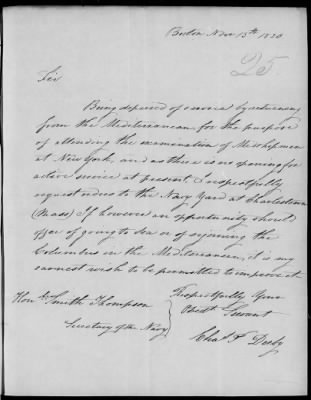 Boston Novr 13th 1820
25.
Sir
Being deprived of service by returning
from the Mediterranean for the purpose
of attending the examination of Midshipmen
at New York, and as there is no opening for
active service at present I respectfully
request orders to the Navy Yard at Charlestown
(Mass) If however an opportunity should
offer of going to Sea or of rejoining the
Columbus in the Mediterranean, it is my
earnest wish to be permitted to improve it
Honble Smith Thompson
Secretary of the Navy
Respectfully Your
Obedt Servant
Chas T Derby